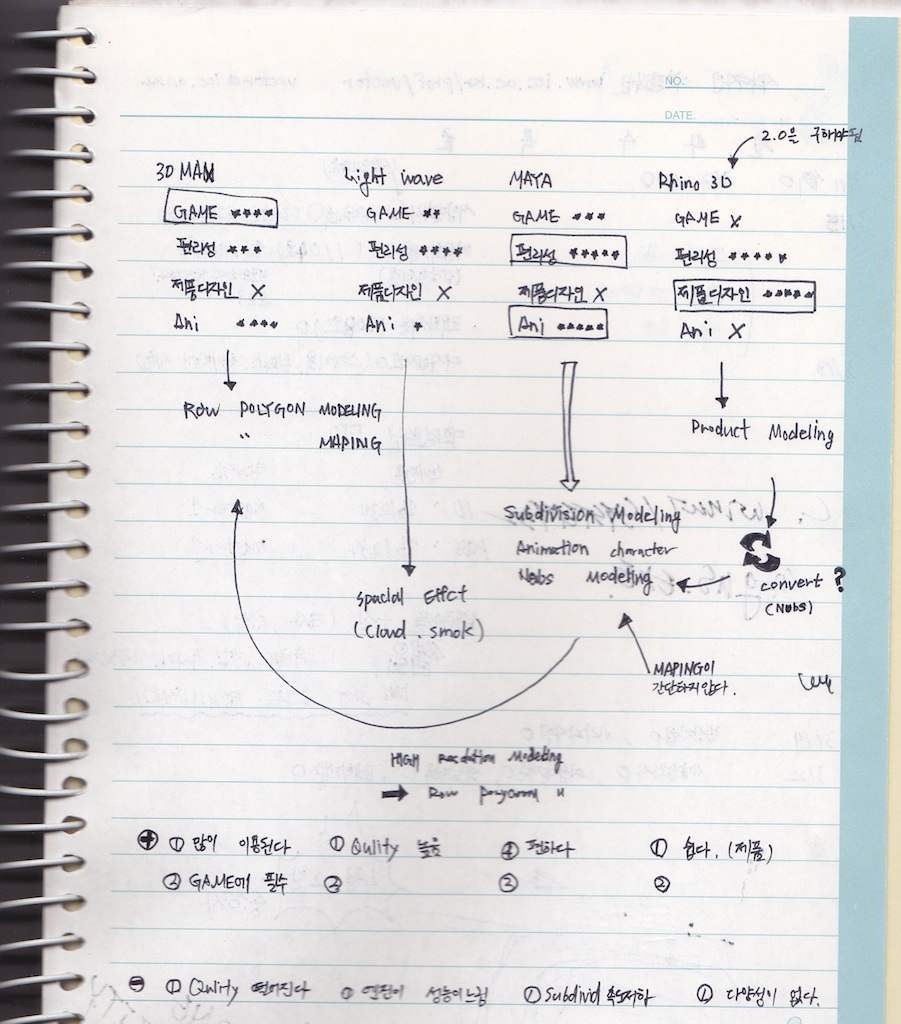 NO.
DATE.
2.0을 구해야됨
3D MAX Light wave MAYA Rhino 3D
GAME **** GAME ** GAME *** GAME X
편리성 *** 편리성 **** 편리성 ***** 편리성 *****
제품디자인 X 제품디자인 X 제품디자인 X 제품디자인 *****
Ani **** Ani * Ani ***** Ani X
Row POLYGON MODELING
" MAPING
Product Modeling
Subdivision Modeling
Animation character
Nubs Modeling
convert ?
(Nubs)
Spacial Effct
(Cloud . smok)
MAPING이
간단하지 않다.
HIGH Resolation Modeling
➡ Row polygone "
⊕ ① 많이 이용된다 ① Qulity 높음 ① 편하다 ① 쉽다. (제품)
② GAME에 필수 ② ② ②
⊖ ① Qulity 떨어진다 ① 엔진이 성능이 느림 ① Subdivid 속도저하 ① 다양성이 없다.